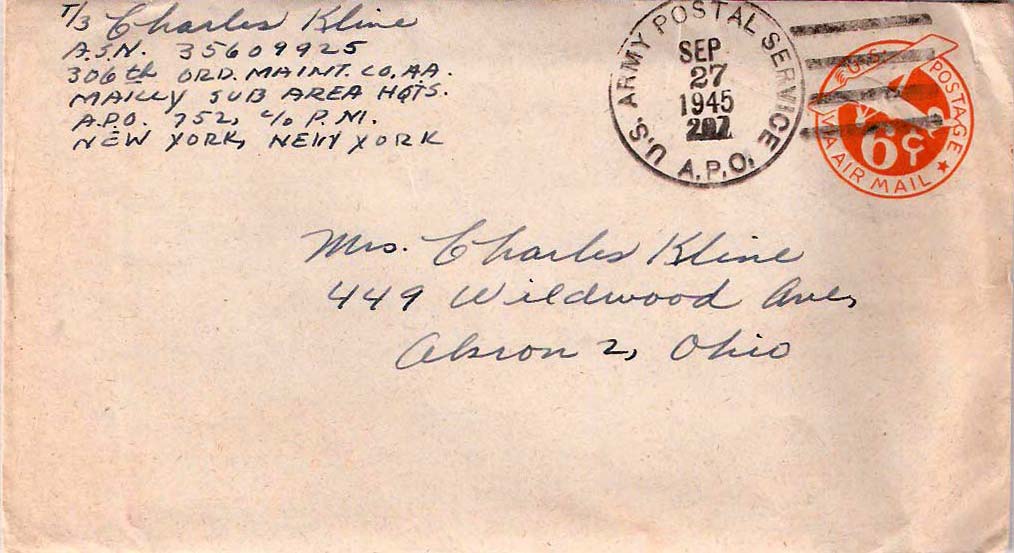 T/3 Charles Kline
A.S.N. 35609925
306th ORD. MAINT. CO. AA.
MAILLY SUB AREA HQTS.
A.P.O. 752, c/o P.M.
NEW YORK, NEW YORK
U.S. ARMY POSTAL SERVICE
SEP
27
1945
A.P.O.
U.S. POSTAGE
6¢
VIA AIR MAIL
Mrs. Charles Kline
449 Wildwood Ave,
Akron 2, Ohio